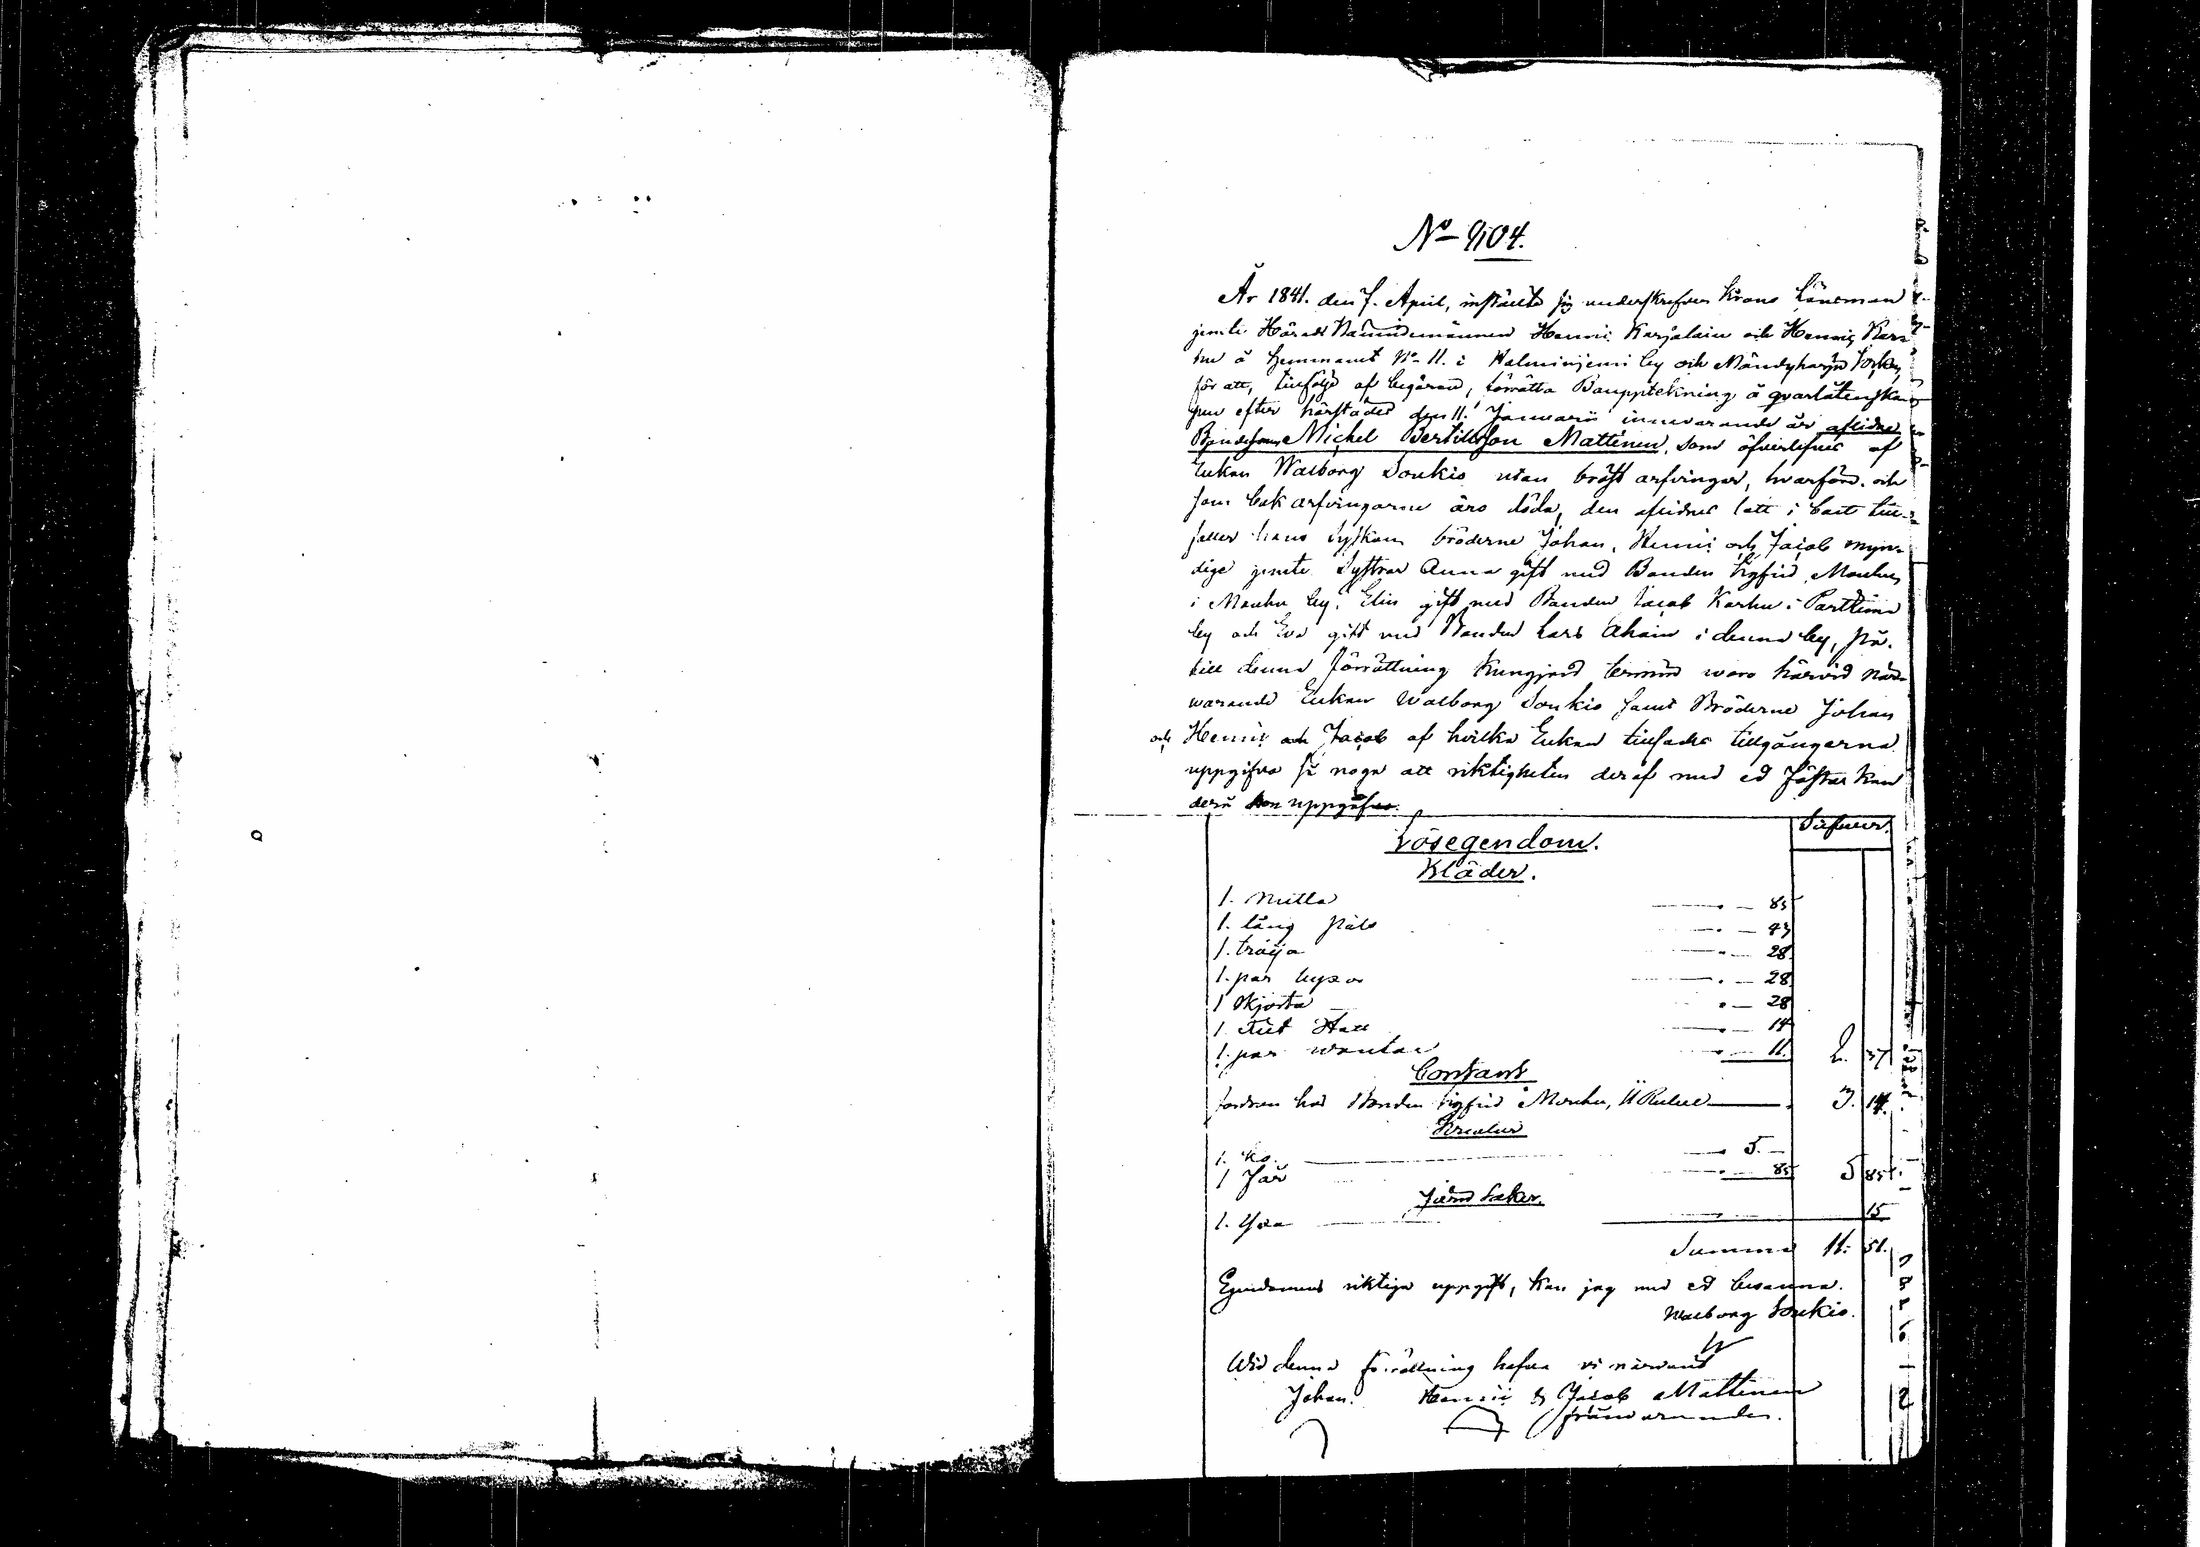 No 904.
År 1841. den 7. April, instälte sig underskrefven Krono Länsman
jemte Härads Nämndemännen Henric Karjalain och Henric
å hemmanet No 11. i Halminjemi by och Mändyharju Socken,
för att, tillfölje af begäran, förrätta Bouppteckning å qvarlåtenska-
pen efter härstädes den 11. Januarii innevarande år aflidne
Bondesonen Michel Bertillsson Mattinen, som öfverlefves af
Enkan Walborg Soukio utan bröst arfvingar, hvarföre och
som bak arfvingarne äro döda, den aflidnes
faller hans Syskon bröderne Johan, Henric och Jacob myn-
dige jemte Systrar Anna gift med Bonden Sigfrid Mouhu
i Mouhu by, Elin gift med Bonden Jacob Karhu i Parttima
by och Eva gift med Bonden Lars Ahain i denna by, på.
till denna förrättning kungjord termin woro härvid när-
warande Enkan Walborg Soukio samt Bröderne Johan
och Henric och Jacob af hvilka Enkan tillsades tillgångarna
uppgifva så noga att riktigheten deraf med ed fästas kan
derå hon uppgaf
Silfwer.
Lösegendom.
Kläder.
1. Mutta — 85
1. lång päls — 43
1. tröija — 28
1. par byxor — 28
1 Skjorta — 28
1. Filt Hatt — 14
1. par wantar — 11. 2. 37
Contant
fordran hos Bonden Sigfrid Mouhu, 11 Rubel — 3. 14.
Kreatur
1. Ko. — 5. —
1 Får — 85 5 85
Järnd Saker.
1. Yxa — 15
Summa 11. 51.
Egendomens riktiga uppgift, kan jag med ed besanna.
Walborg Soukio.
Wid denna förrättning hafva vi närvarit
Johan. Henric & Jacob Mattinen